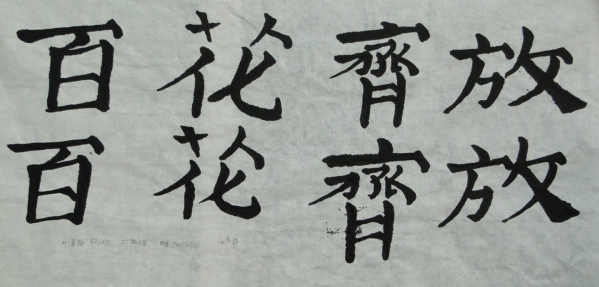 百花齊放
百花齊放